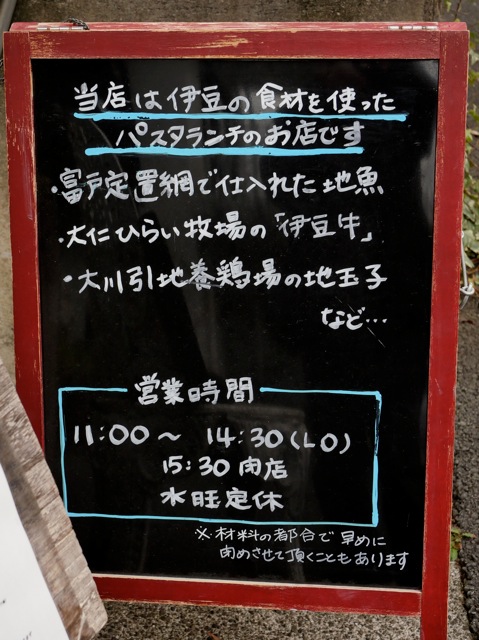 当店は伊豆の食材を使った
パスタランチのお店です
・富戸定置網で仕入れた地魚
・大仁ひらい牧場の「伊豆牛」
・大川引地養鶏場の地玉子
など…
営業時間
11:00〜 14:30(LO)
15:30閉店
水旺定休
※材料の都合で早めに
閉めさせて頂くこともあります